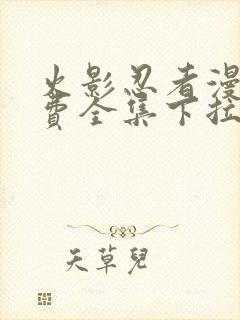 火影忍者漫
费全集下拉
天草兒